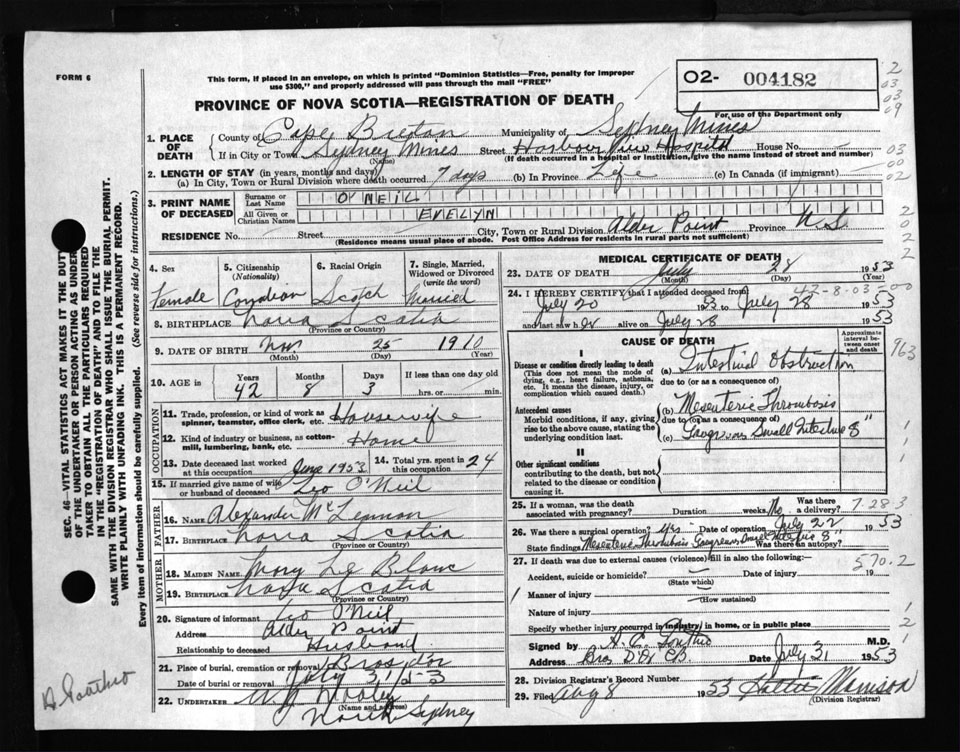 FORM 6
This form, if placed in an envelope, on which is printed "Dominion Statistics—Free, penalty for improper
use $300," and properly addressed will pass through the mail "FREE"
O2- 004182
For use of the Department only
PROVINCE OF NOVA SCOTIA—REGISTRATION OF DEATH
1. PLACE OF DEATH
County of Cape Breton Municipality of Sydney Mines
If in City or Town Sydney Mines Street Harbour View Hospital House No.
(Name) (If death occurred in a hospital or institution, give the name instead of street and number)
2. LENGTH OF STAY (in years, months and days)
(a) In City, Town or Rural Division where death occurred 7 days (b) In Province Life (c) In Canada (if immigrant)
3. PRINT NAME OF DECEASED
Surname or Last Name O'NEIL
All Given or Christian Names EVELYN
RESIDENCE No. Street City, Town or Rural Division Alder Point Province N.S
(Residence means usual place of abode. Post Office Address for residents in rural parts not sufficient)
4. Sex 5. Citizenship (Nationality) 6. Racial Origin 7. Single, Married, Widowed or Divorced (write the word)
Female Canadian Scotch Married
8. BIRTHPLACE Nova Scotia
(Province or Country)
9. DATE OF BIRTH Nov 25 1910
(Month) (Day) (Year)
10. AGE in Years Months Days If less than one day old
42 8 3 hrs. or min.
OCCUPATION
11. Trade, profession, or kind of work as spinner, teamster, office clerk, etc. Housewife
12. Kind of industry or business, as cotton-mill, lumbering, bank, etc. Home
13. Date deceased last worked at this occupation June 1953 14. Total yrs. spent in this occupation 24
15. If married give name of wife or husband of deceased Leo O'Neil
FATHER
16. NAME Alexander McLennon
17. BIRTHPLACE Nova Scotia
(Province or Country)
MOTHER
18. MAIDEN NAME Mary Le Blanc
19. BIRTHPLACE Nova Scotia
(Province or Country)
20. Signature of informant Leo O'Neil
Address Alder Point
Relationship to deceased Husband
21. Place of burial, cremation or removal Bras d'or
Date of burial or removal July 31/53
22. UNDERTAKER
(Name and address)
North Sydney
MEDICAL CERTIFICATE OF DEATH
23. DATE OF DEATH July 28 1953
(Month) (Day) (Year)
24. I HEREBY CERTIFY that I attended deceased from 42-8-03-00
July 20 1953 to July 28 1953
and last saw her alive on July 28 1953
CAUSE OF DEATH
Approximate interval between onset and death
I
Disease or condition directly leading to death
(This does not mean the mode of dying, e.g., heart failure, asthenia, etc. It means the disease, injury, or complication which caused death.)
(a) Intestinal Obstruction
due to (or as a consequence of)
Antecedent causes
Morbid conditions, if any, giving rise to the above cause, stating the underlying condition last.
(b) Mesenteric Thrombosis
due to (or as a consequence of)
(c) Gangrenous Small Intestine 8"
II
Other significant conditions
contributing to the death, but not related to the disease or condition causing it.
25. If a woman, was the death associated with pregnancy? Duration weeks. No Was there a delivery? 7.28 3
26. Was there a surgical operation? Yes Date of operation July 22 1953
State findings Mesenteric Thrombosis Gangrenous Small Intestine 8" Was there an autopsy?
27. If death was due to external causes (violence) fill in also the following:— 570.2
Accident, suicide or homicide? Date of injury 19
(State which)
Manner of injury
(How sustained)
Nature of injury
Specify whether injury occurred in industry, in home, or in public place
Signed by M.D.
Address Date July 31 1953
28. Division Registrar's Record Number
29. Filed Aug 8 1953 Hattie
(Division Registrar)
SEC. 46—VITAL STATISTICS ACT MAKES IT THE DUTY
OF THE UNDERTAKER OR PERSON ACTING AS UNDERTAKER TO OBTAIN ALL THE PARTICULARS REQUIRED
IN THE "REGISTRATION OF DEATH" AND TO FILE THE
SAME WITH THE DIVISION REGISTRAR WHO SHALL ISSUE THE BURIAL PERMIT.
WRITE PLAINLY WITH UNFADING INK. THIS IS A PERMANENT RECORD.
Every item of information should be carefully supplied. (See reverse side for instructions.)